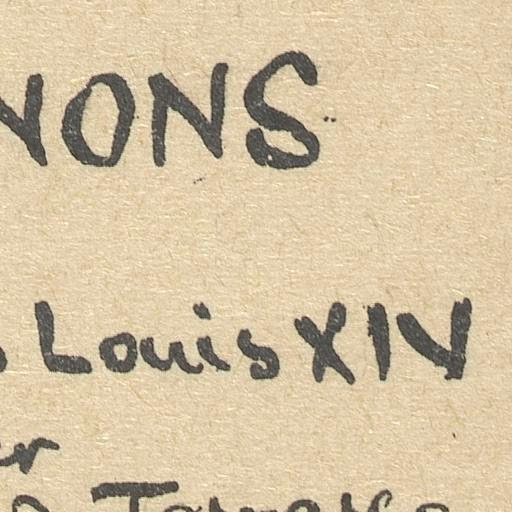 NONS
Louis XIV
er